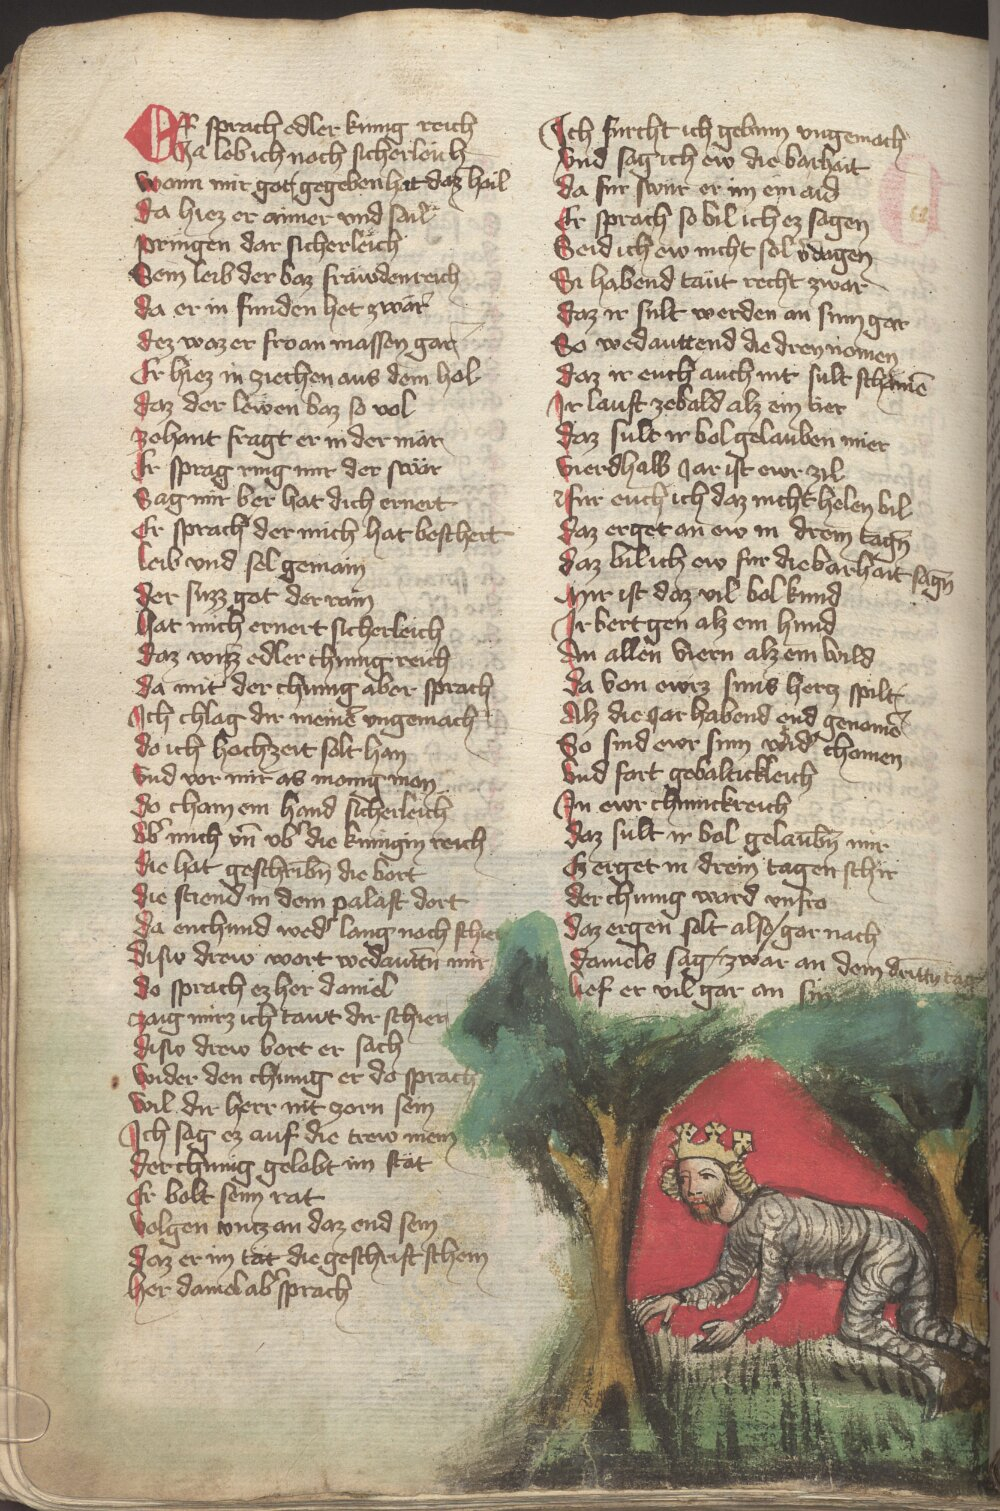 Er sprach edler kunig reich
Ja leb ich noch sicherleich
Wann mir got gegeben hat daz hail
Da hiez er aimer vnd sail
Pringen dar sicherleich
Sein leib der baz fräwdenreich
Da er in funden het zwar
Dez waz er fro an massen gar
Er hiez in ziechen aus dem hol
Daz der lewen baz so vol
Zehant fragt er in der mär
Er sprag ring mir der swär
Sag mir ber hat dich ernert
Er sprach der mich hat beschert
Leib vnd sel gemain
Der suzz got der rain
Hat mich ernert sicherleich
Daz wizz edler chunig reich
Da mit der chunig aber sprach
Ich chlag dir meinē vngemach
do ich hochzeit solt han
Vnd vor mir as manig man
Do cham ein hand sicherleich
Vbʼ mich vn̄ vbʼ die kunigin reich
Die hat geschribn̄ die bort
Die stend in dem palast dort
Da enchund wedʼ lang noch schier
Disiv drew wort wedäwtn̄ mir
Do sprach ez her daniel
Zaig mirz ich tawt dir schier
Disiv drew bort er sach
Wider den chunig er do sprach
Wil dir herr nit zorn sein
Ich sag ez auf die trew mein
Der chunig gelobt im stät
Er bolt seim rat
Volgen vntz an daz end sein
Daz er im tät die geschrift schein
Her daniel abʼ sprach
Ich furcht ich gebinn vngemach
Vnd sag ich ew die barhait
Da fur swur er im ein aid
Er sprach so bil ich ez sagen
Seid ich ew nicht sol vʼdagen
Si habend täut recht zwar
Daz ir sult werden an sinn gar
So wedauttend die drey nomen
Daz ir euch auch nit sult schamē
Ir lauft zebald alz ein tier
Daz sult ir bol gelauben mier
Vierdhalb Jar ist ewr zil
fur euch ich daz nicht helen bil
Daz erget an ew in drein tagn̄
Daz bil ich ew fur die barhait sagn̄
Mir ist daz vil bol kund
Ir bert gen alz ein hund
An allen viern alz ein wild
Da von ewrz sinns hertz spilt
Alz die Jar habend end genomē
So sind ewr sinn vʼ chomen
Vnd fart gebaltickleich
In ewr chunickreich
Daz sult ir bol gelaubn̄ mir
Ez erget in drein tagen schir
Der chunig ward vnfro
Daz ergen solt also / gar nach
Daniels sag / zwar an dem dritten tag
Lief er vil gar an sin